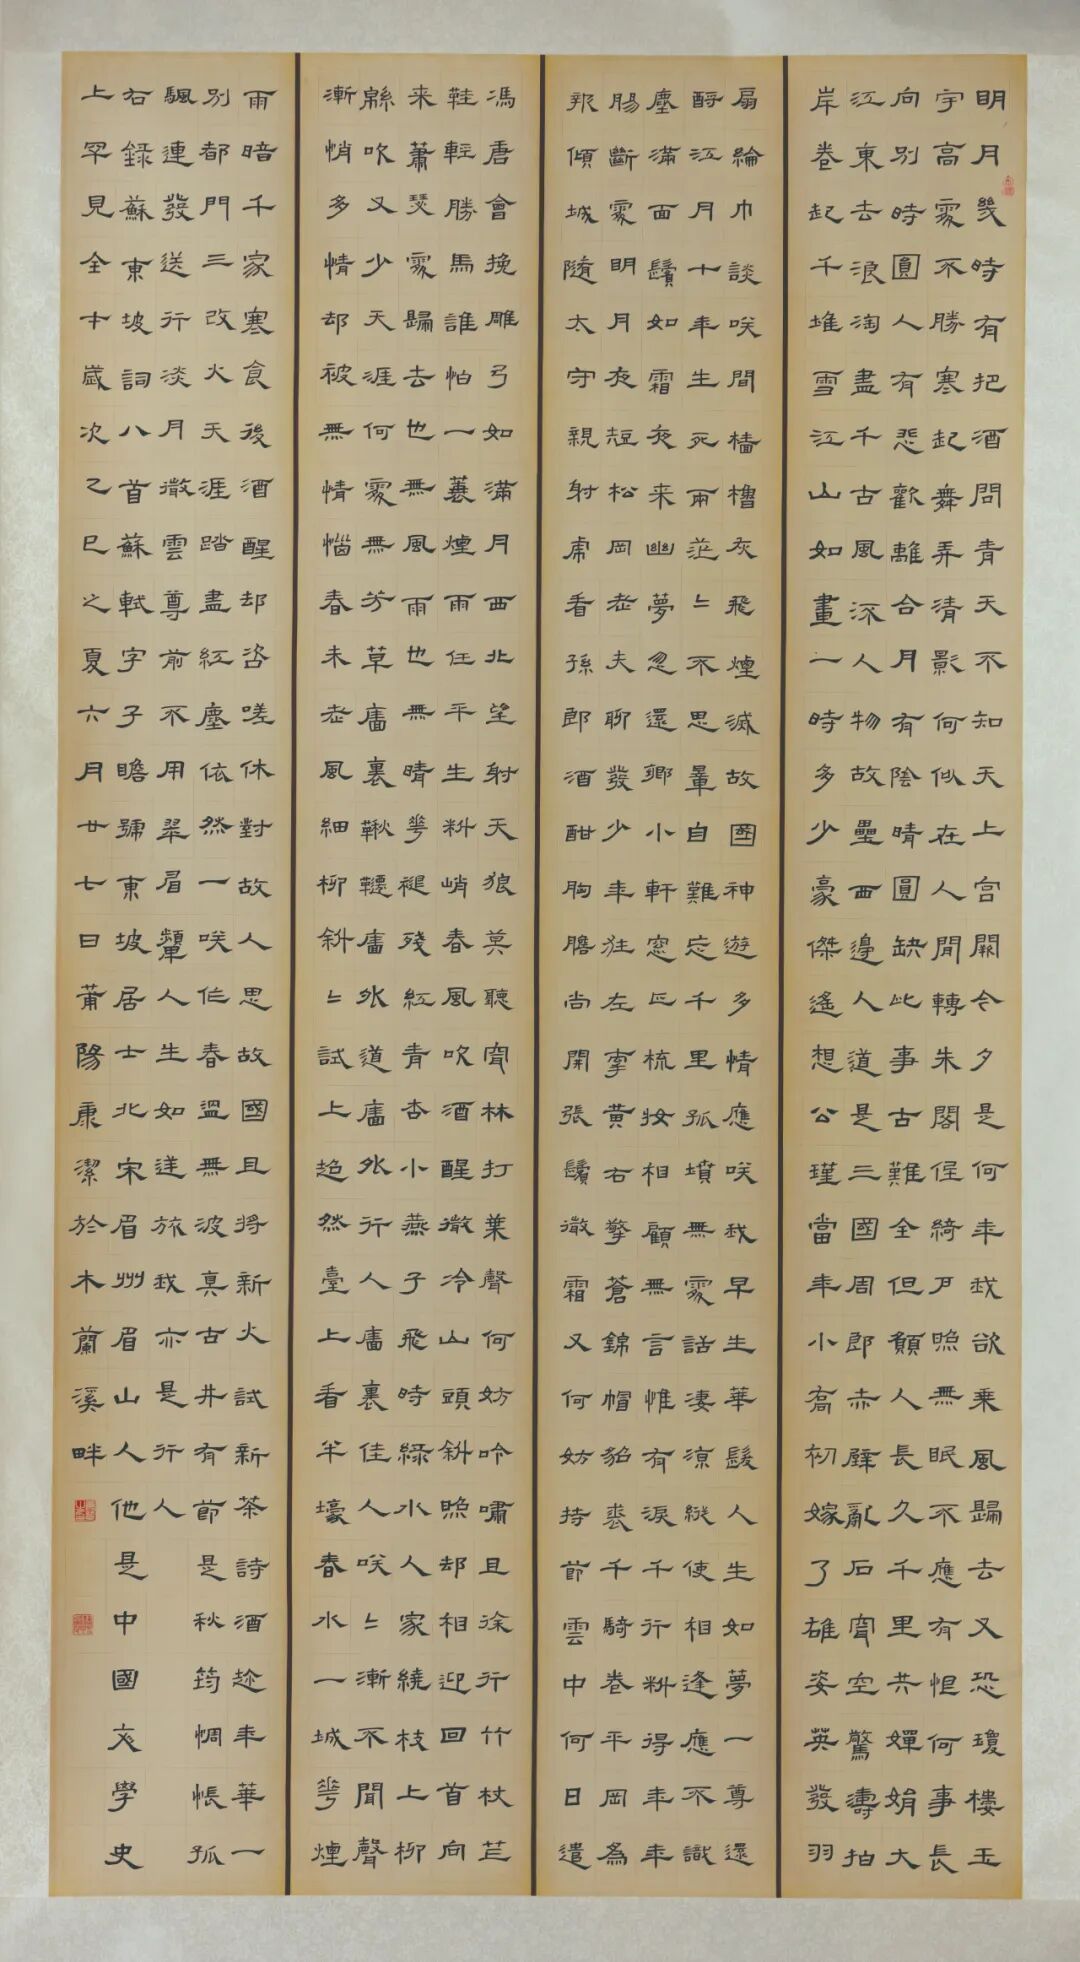 明月幾時有把酒問青天不知天上宮闕今夕是何年我欲乘風歸去又恐瓊樓玉
宇高處不勝寒起舞弄清影何似在人間轉朱閣低綺户照無眠不應有恨何事長
向別時圓人有悲歡離合月有陰晴圓缺此事古難全但願人長久千里共嬋娟大
江東去浪淘盡千古風流人物故壘西邊人道是三國周郎赤壁亂石穿空驚濤拍
岸卷起千堆雪江山如畫一時多少豪傑遙想公瑾當年小喬初嫁了雄姿英發羽
扇綸巾談笑間檣櫓灰飛煙滅故國神遊多情應笑我早生華髮人生如夢一尊還
酹江月十年生死兩茫〻不思量自難忘千里孤墳無處話淒涼縱使相逢應不識
塵滿面鬢如霜夜来幽夢忽還鄉小軒窓正梳妝相顧無言惟有淚千行料得年年
腸斷處明月夜短松岡老夫聊發少年狂左牽黃右擎蒼錦帽貂裘千騎卷平岡為
報傾城隨太守親射虎看孫郎酒酣胸膽尚開張鬢微霜又何妨持節雲中何日遣
馮唐會挽雕弓如滿月西北望射天狼莫聽穿林打葉聲何妨吟嘯且徐行竹杖芒
鞋輕勝馬誰怕一蓑煙雨任平生料峭春風吹酒醒微冷山頭斜照却相迎回首向
来蕭瑟處歸去也無風雨也無晴花褪殘紅青杏小燕子飛時綠水人家繞枝上柳
緜吹又少天涯何處無芳草牆裏鞦韆牆外道牆外行人牆裏佳人笑〻漸不聞聲
漸悄多情却被無情惱春未老風細柳斜〻試上超然臺上看半壕春水一城花煙
雨暗千家寒食後酒醒却咨嗟休對故人思故國且將新火試新茶詩酒趁年華一
別都門三改火天涯踏盡紅塵依然一笑作春溫無波真古井有節是秋筠惆悵孤
颿連發送行淡月微雲尊前不用翠眉顰人生如逆旅我亦是行人
右錄蘇東坡詞八首蘇軾字子瞻號東坡居士北宋眉州眉山人他是中國文學史
上罕見全才歲次乙巳之夏六月廿七日莆陽康潔於木蘭溪畔